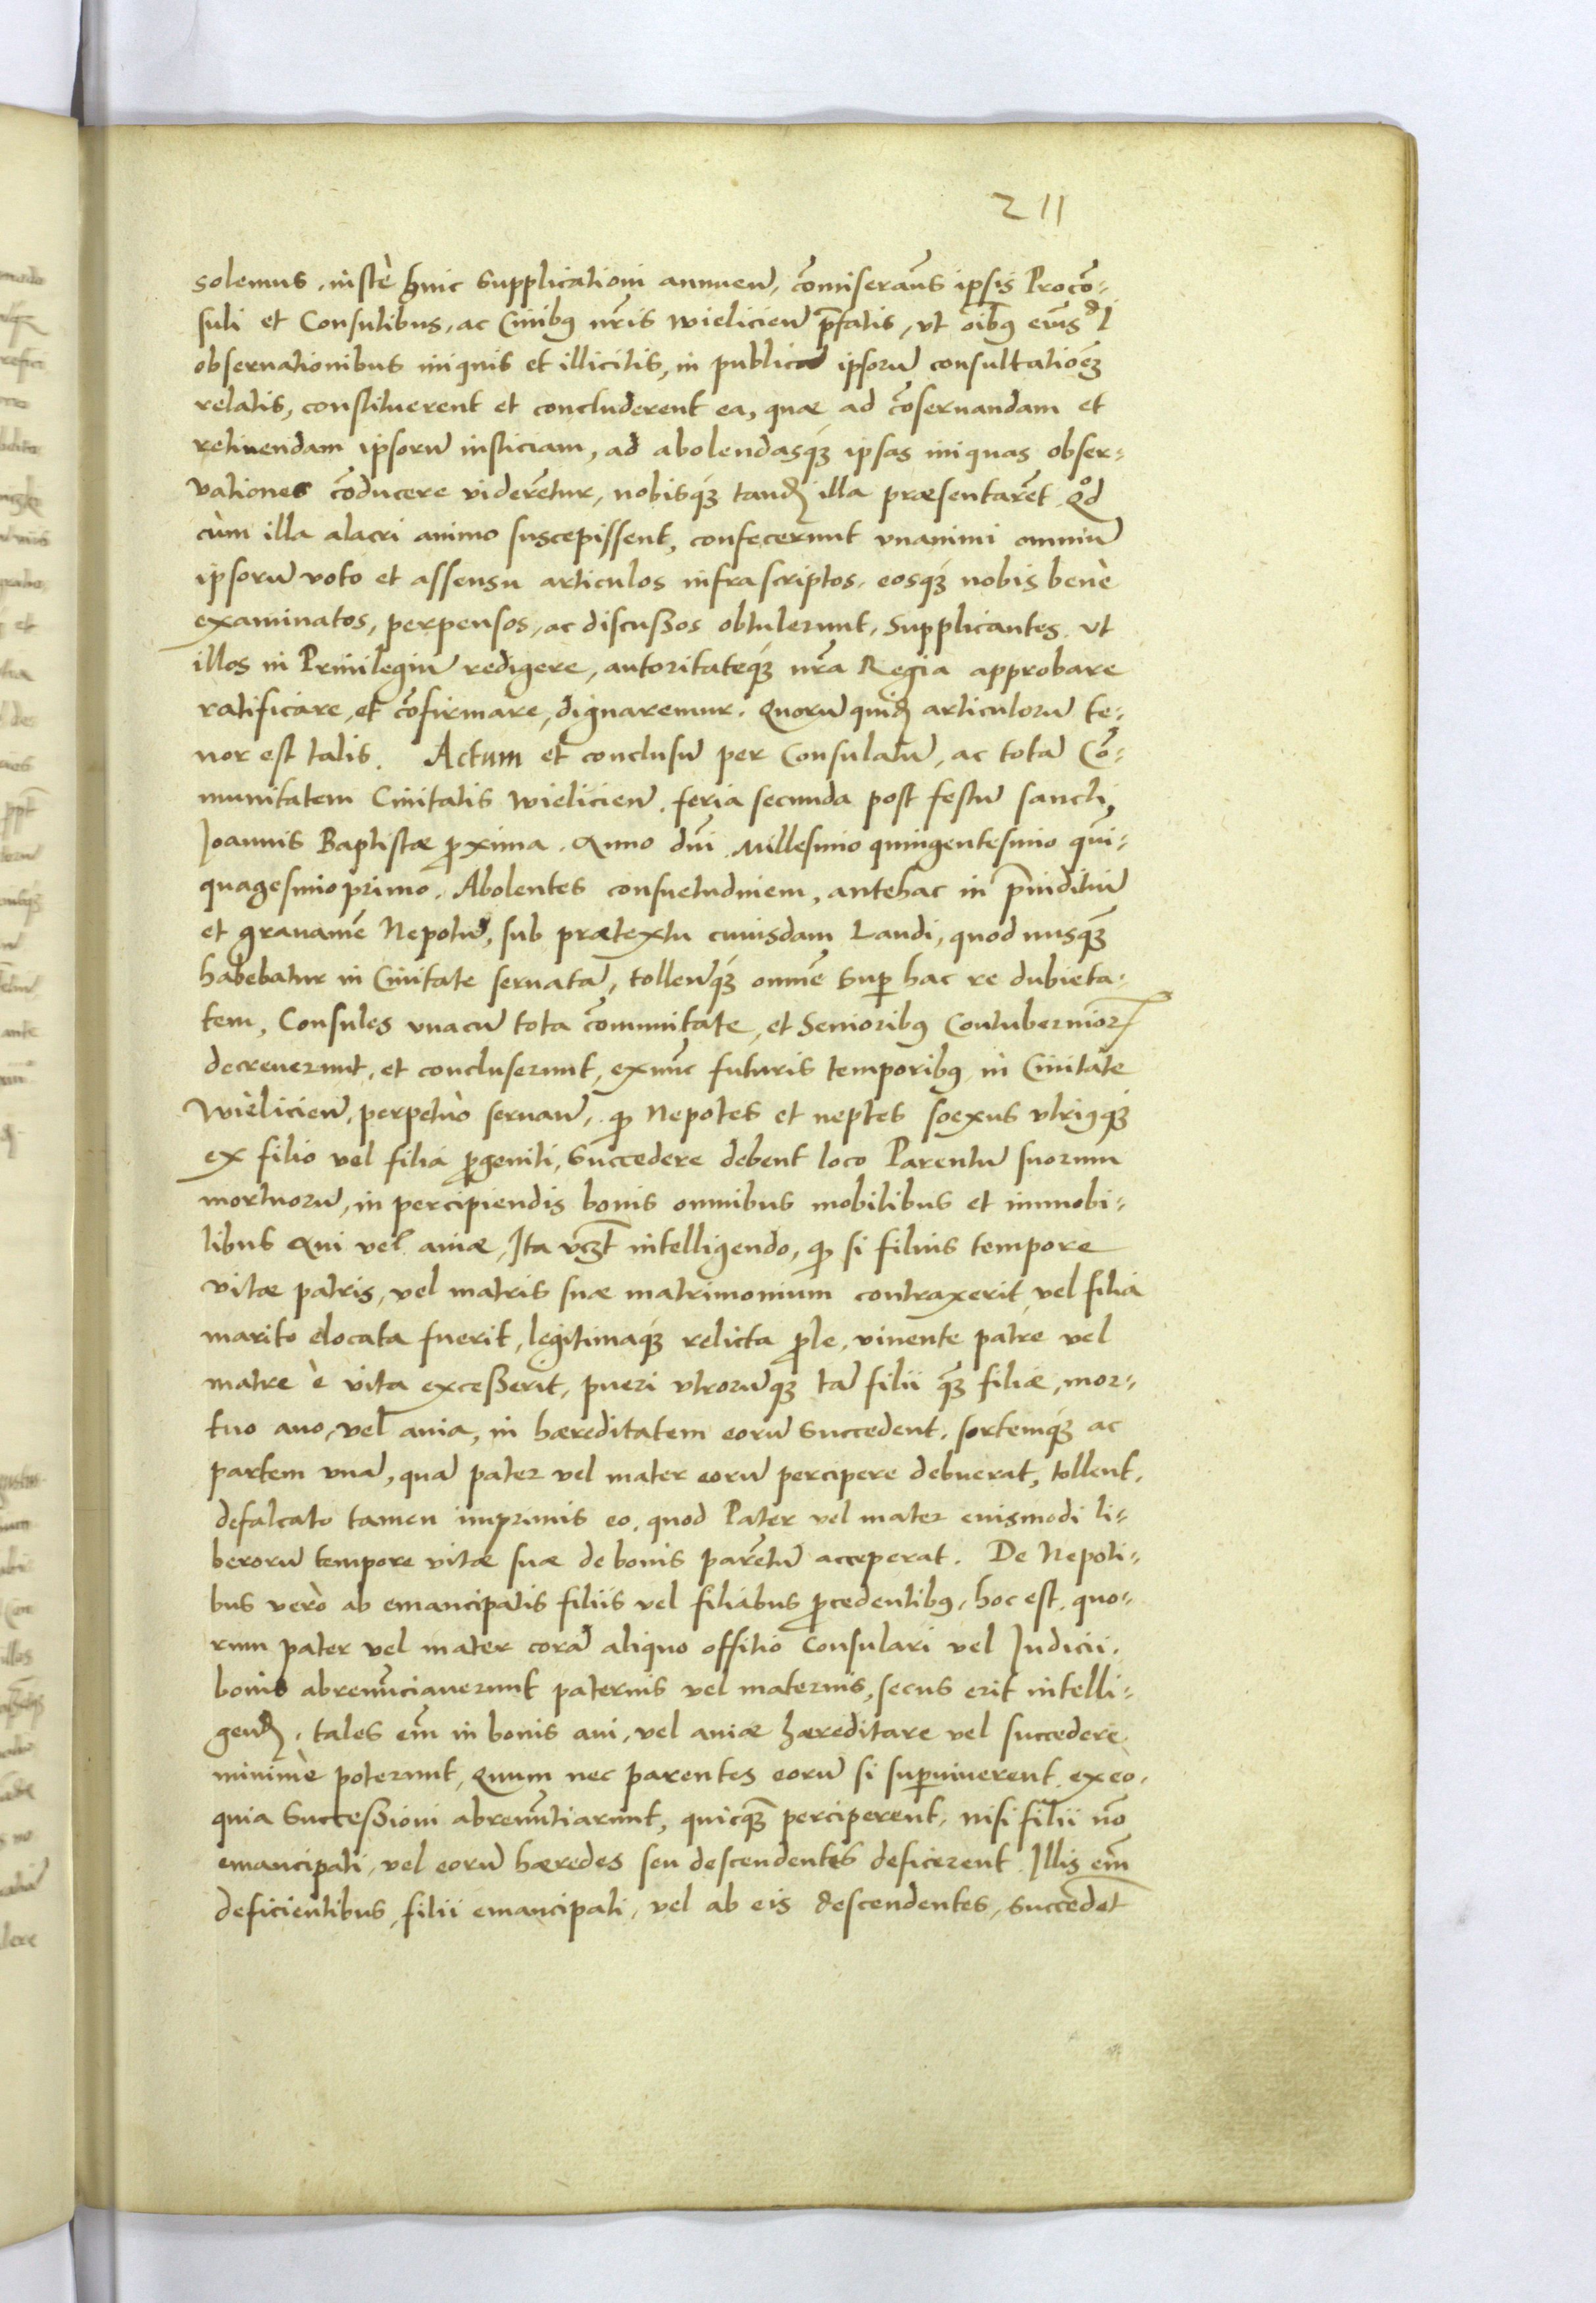 211
solemus, iustè huic supplicationi annuen̄, cōmiseramꝰ ipsis Procō-
suli et Consulibus, ac Ciuibꝰ nr̄is Wielicien̄ p̄fatis, vt oībꝰ eiusdi
obseruationibus iniquis et illicitis, in publicā ipsorū consultationeʒ
relatis, constituerent et concluderent ea, quæ ad cōseruandam et
retinendam ipsorū iusticiam, ad abolendasqʒ ipsas iniquas obser-
vationes cōducere viderētur, nobisqʒ tandē illa præsentarēt. Qd̊
cùm illa alacri animo suscepissent, confecerunt vnanimi omniū
ipsorū voto et assensu articulos infrascriptos, eosqʒ nobis benè
examinatos, perpensos, ac discußos obtulerunt, Supplicantes, vt
illos in Priuilegiū redigere, autoritateqʒ nr̄a Regia approbare
ratificare, et cōfirmare, dignaremur. Quorū quidē articulorū te-
nor est talis. Actum et conclusū per Consulatū, ac totā Cō-
munitatem Ciuitatis Wielicien̄, feria secunda post festū sancti
Joannis Baptistæ p̄xima. Anno dn̄i Millesimo quingentesimo qui-
quagesimoprimo. Abolentes consuetudinem, antehac in p̄iuditiū
et grauamē Nepotū, sub prætextu cuiusdam Laudi, quod nusqʒ
habebatur in Ciuitate seruatā, tollen̄qʒ omnē sup̱ hac re dubieta-
tem, Consules vnacū tota cōmunitate, et Senioribꝰ Contubernioꝝ
decreuerunt, et concluserunt, exnūc futuris temporibꝰ in Ciuitate
Wielicien̄, perpetuò seruan̄, qꝫ Nepotes et neptes sexus vtriꝰqʒ
ex filio vel filia p̄geniti, Succedere debent loco Parentū suorum
mortuorū, in percipiendis bonis omnibus mobilibus et immobi-
libus Aui vel auiæ, Ita vʒt intelligendo, qꝫ si filius tempore
vitæ patris, vel matris suæ matrimonium contraxerit, vel filia
marito elocata fuerit, legitimaqʒ relicta p̄le, viuente patre vel
matre è vita exceßerit, pueri vtrorūqʒ tā filii qʒ filiæ, mor-
tuo auo, vel auia, in hæreditatem eorū Succedent, sortemqʒ ac
partem vnā, quā pater vel mater eorū percipere debuerat, tollent,
defalcato tamen imprimis eo, quod Pater vel mater eiusmodi li-
berorū tempore vitæ suæ de bonis parētū acceperat. De Nepoti-
bus verò ab emancipatis filiis vel filiabus p̄cedentibꝰ, hoc est, quo-
rum pater vel mater corā aliquo offitio Consulari vel Judicii,
bonis abrenūciauerunt paternis vel maternis, secus erit intelli-
gendū, tales em̄ in bonis aui, vel auiæ hæreditare vel succedere
minimè poterunt, Quum nec parentes eorū si sup̱uiuerent, ex eo,
quia Succeßioni abrenūtiarunt, quicqʒ perciperent, nisi filii nō
emancipati, vel eorū hæredes seu descendentes deficerent. Illis em̄
deficientibus, filii emancipati, vel ab eis descendentes, succedēt